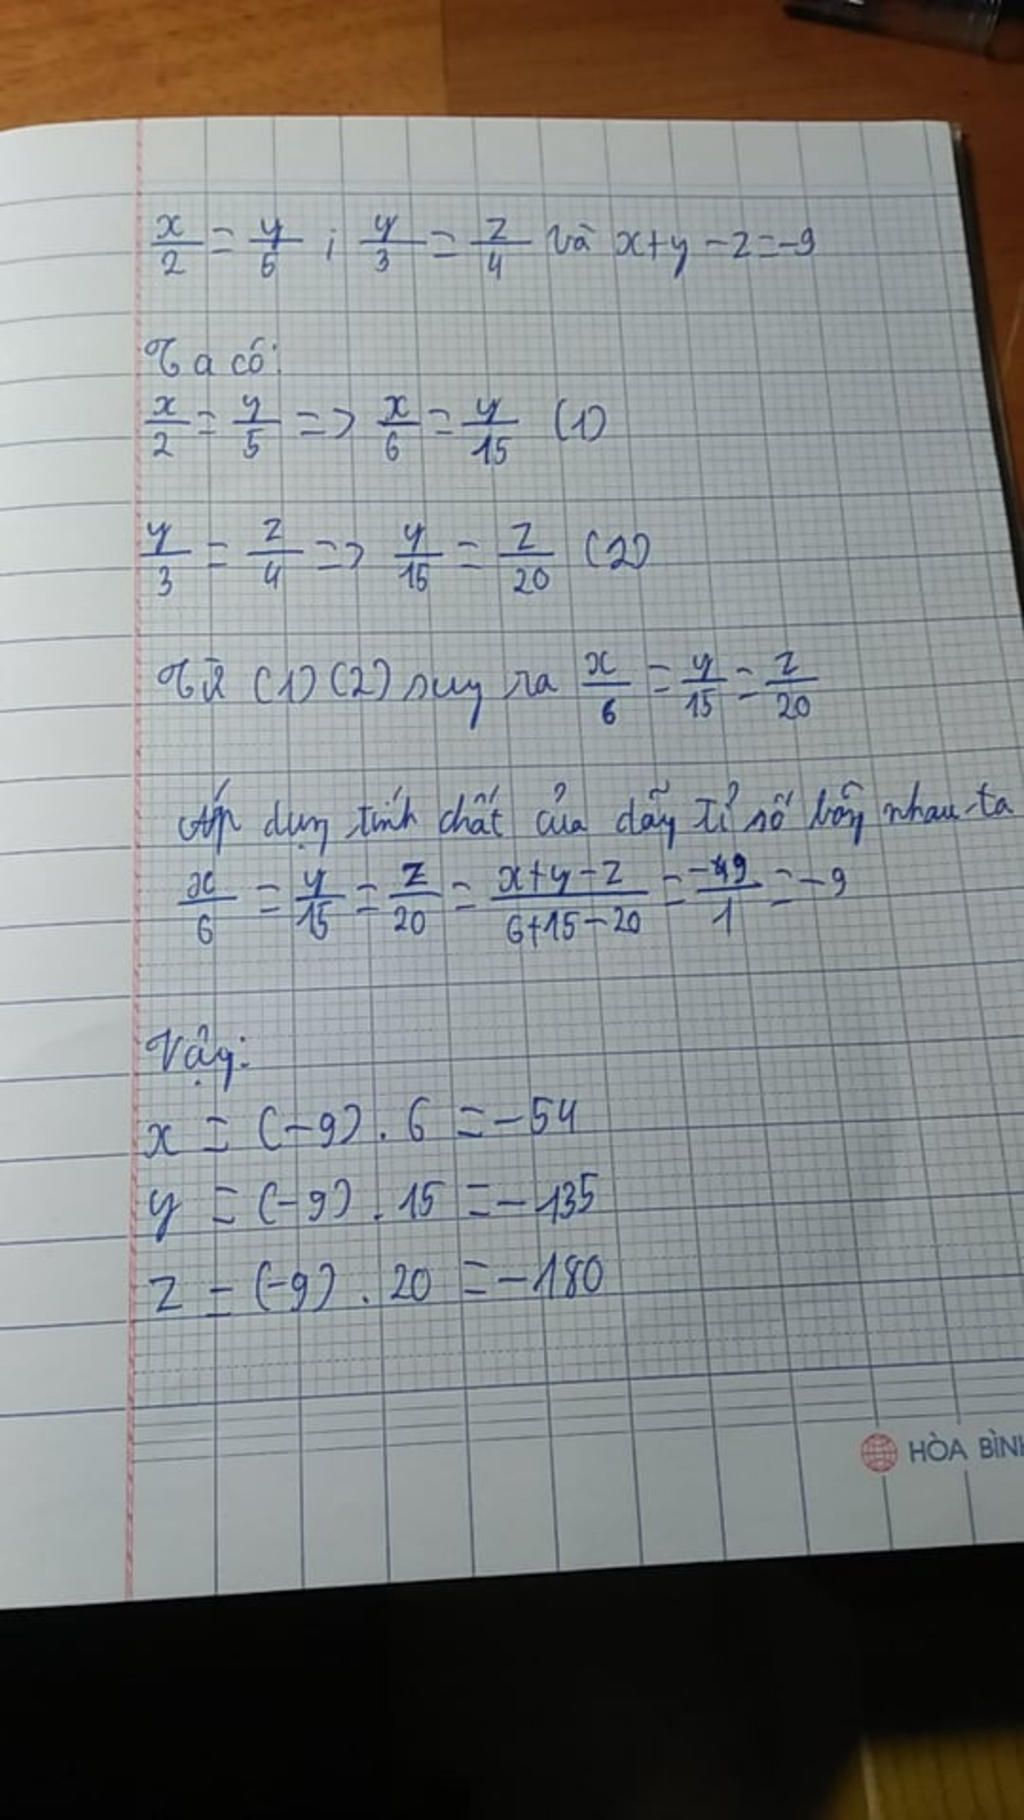 x/2 = y/5 ; y/3 = z/4 và x+y-z=-9
Ta có:
x/2 = y/5 => x/6 = y/15 (1)
y/3 = z/4 => y/15 = z/20 (2)
Từ (1) (2) suy ra x/6 = y/15 = z/20
Áp dụng tính chất của dãy tỉ số bằng nhau ta
x/6 = y/15 = z/20 = x+y-z/6+15-20 = -9/1 = -9
Vậy:
x = (-9) . 6 = -54
y = (-9) . 15 = -135
z = (-9) . 20 = -180
HÒA BÌNH